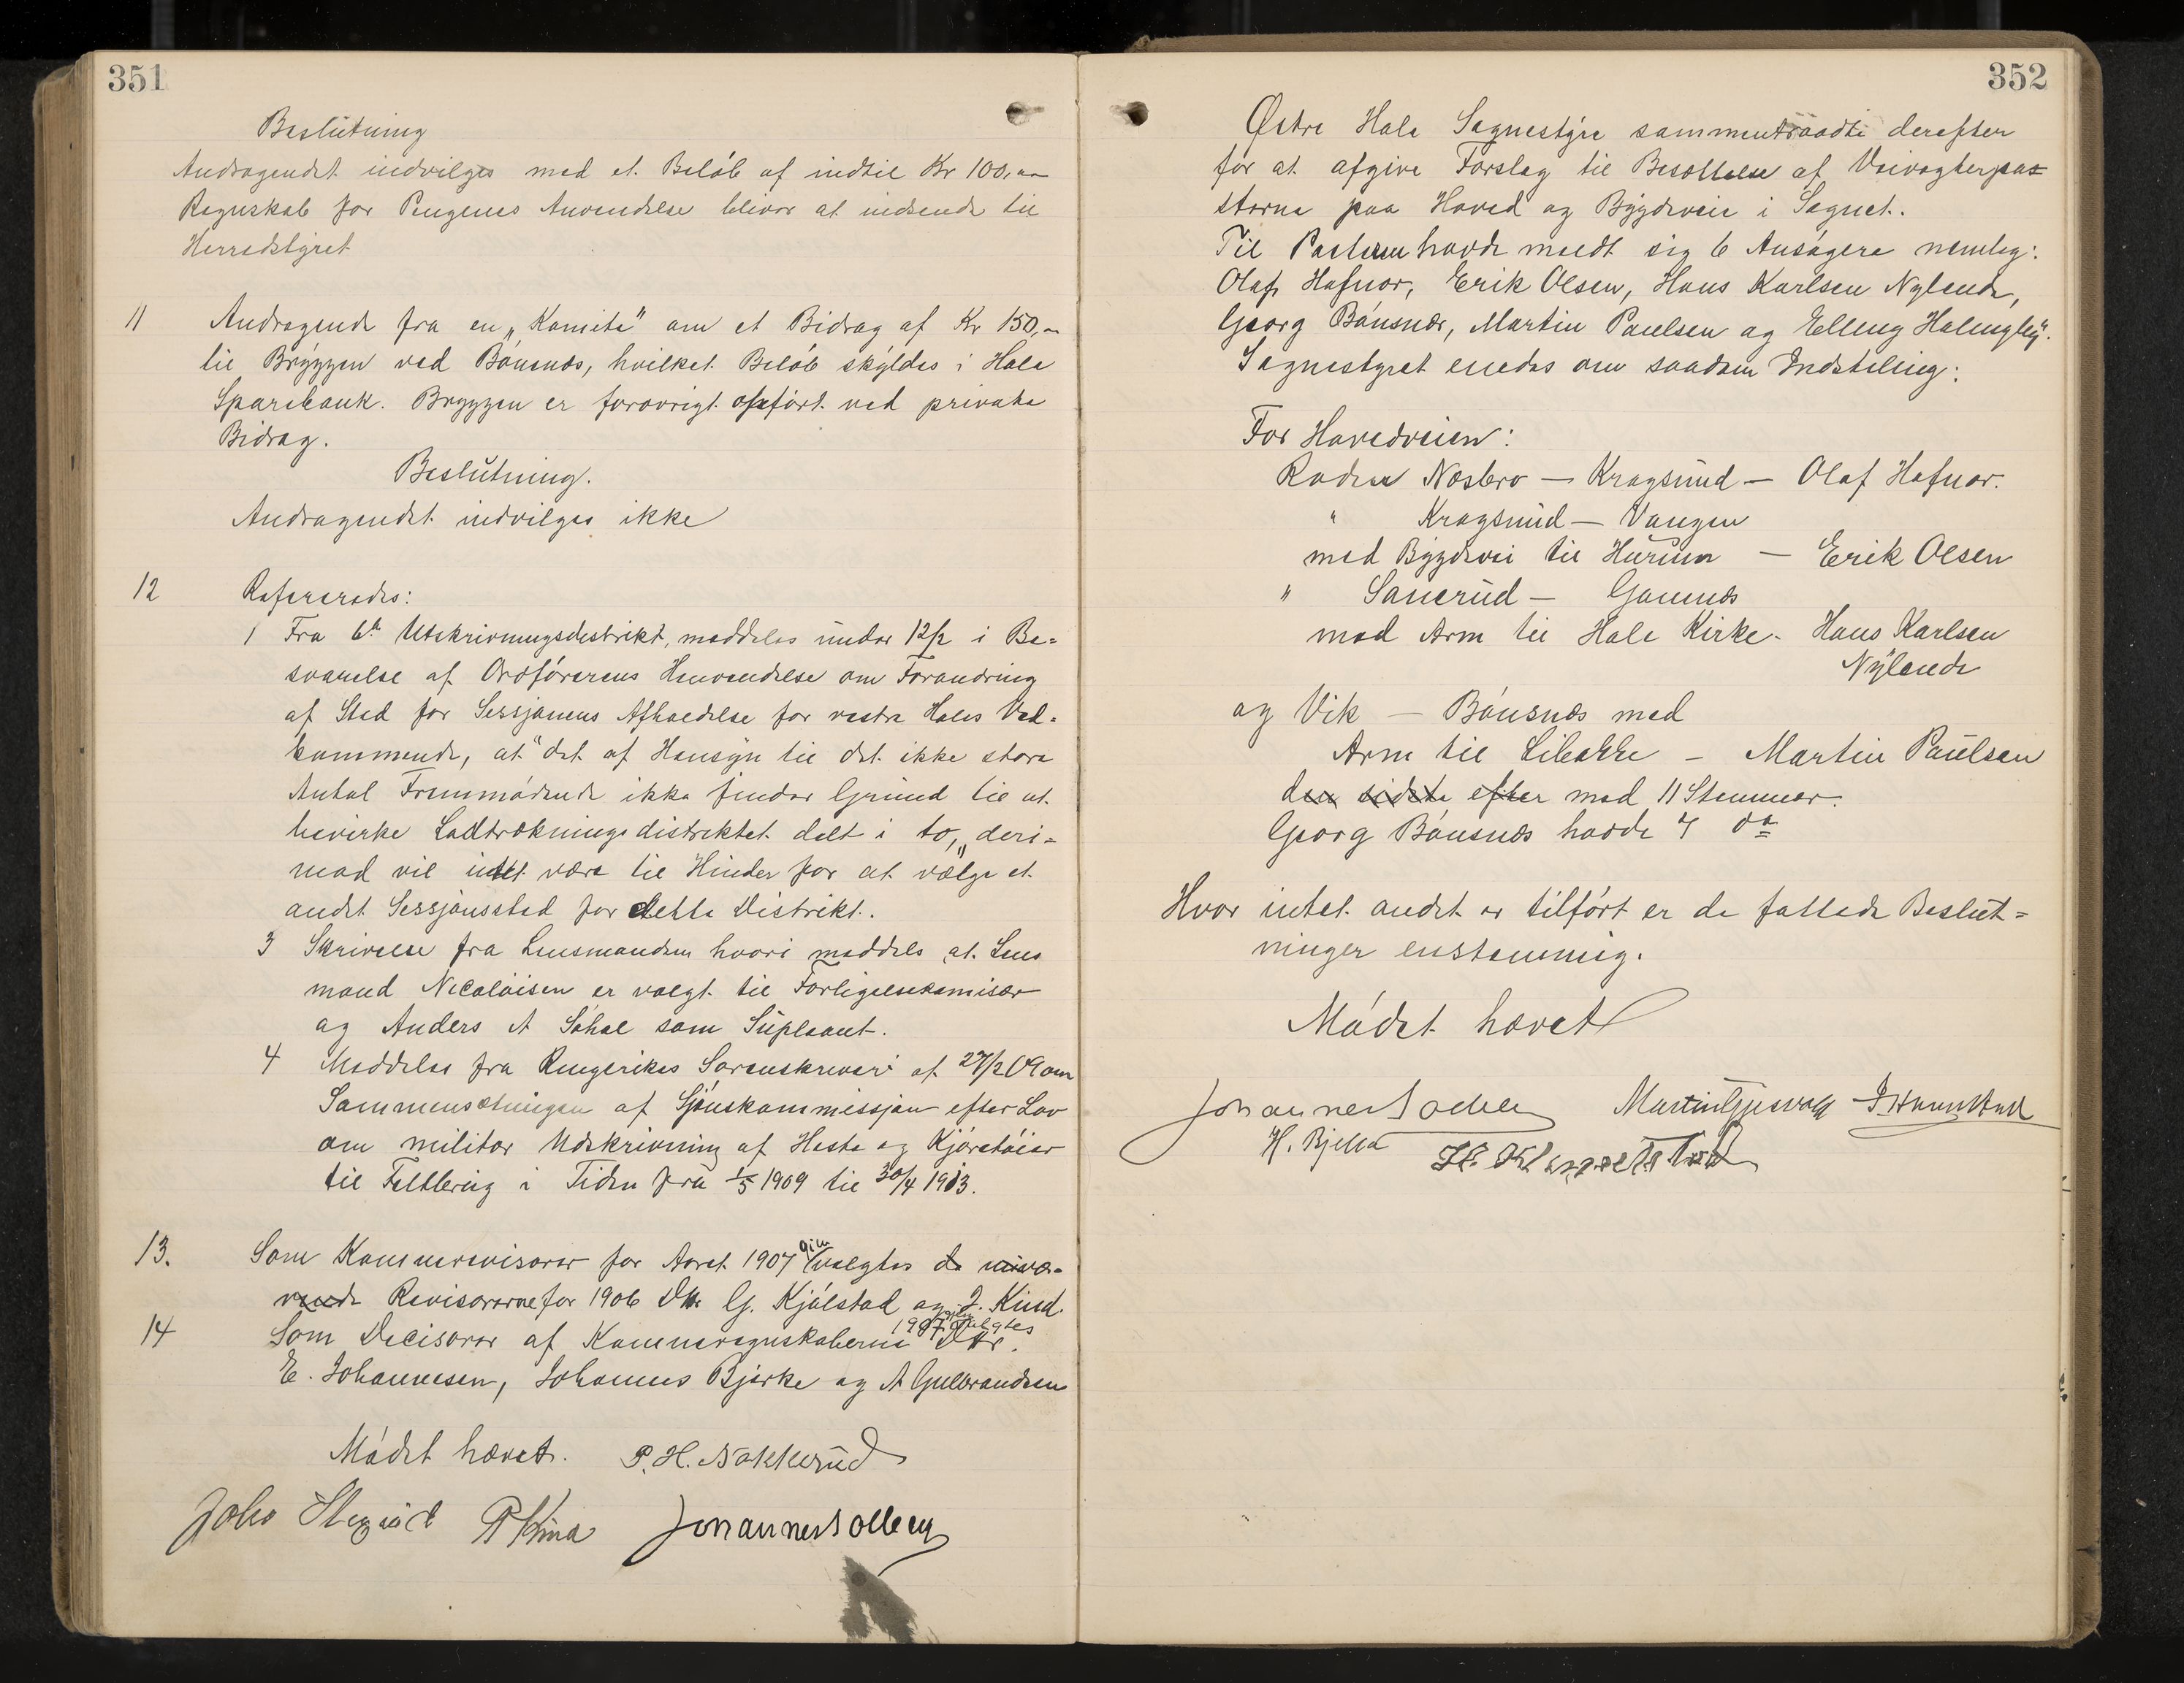 351
Beslutning
Andragendet indvilges med et Beløb af indtil Kr 100,00
Regnskab for Pengenes Anvendelse bliver at indsende til
Herredstyret
11 Andragende fra en „Komite" om et Bidrag af Kr 150,00
til Bryggen ved Bønsnæs, hvilket Beløb skyldes i Hole
Sparebank. Bryggen er forøvrigt opført ved private
Bidrag.
Beslutning.
Andragendet indvilges ikke
12 Refereredes:
1 Fra 6te Utskrivningsdistrikt, meddeles under 12/2 i Be=
svarelse af Ordførerens Henvendelse om Forandring
af Sted for Sessjonens Afholdelse for vestre Holes Ved=
kommende, at "det af Hensyn til det ikke store
Antal Fremmødende ikke finder Grund til at
bevirke Lodtrækningsdistriktet delt i to," deri=
mod vil intet være til Hinder for at vælge et
andet Sessjonssted for dette Distrikt.
3 Skrivelse fra Lensmanden hvori meddels at Lens
mand Nicolaisen er valgt til Forligelseskomisær
og Anders A Søhol som Supleant.
4 Meddeles fra Ringerikes Sorenskriveri af 27/2 09 om
Sammensætningen af Sjønskommissjon efter Lov
om militær Udskrivning af Heste og Kjøretøier
til Feltbrug i Tiden fra 1/5 1909 til 30/4 1913.
13. Som Kommunerevisorer for Aaret 1907 gjen valgtes de nuvæ=
rende Revisorerne for 1906 D'Hr G. Kjølstad og J. Kind.
14 Som Decisorer af Kommuneregnskaberne 1907 gjenvalgtes D'Hr.
E. Johannesen, Johannes Bjerke og A Gulbrandsen
Mødet hævet. P. H. Nakkerud
P Kind Johannes Solberg
352
Østre Hole Sognestyre sammentraadte derefter
for at afgive Forslag til Besættelse af Veivogterpos=
sterne paa Hoved og Bygdeveie i Sognet.
Til Posterne havde meldt sig 6 Ansøgere nemlig:
Olaf Hafnor, Erik Olsen, Hans Karlsen Nylende,
Georg Bønsnæs, Martin Paulsen og Elling Helingby.
Sognestyret enedes om saadan Indstiling:
For Hovedveien:
Roden Næsbro — Kragsund — Olaf Hafnor.
" Kragsund — Vangen
med Bygdevei til Hurum — Erik Olsen
" Sønerud — Gomnæs
med Arm til Hole Kirke - Hans Karlsen
Nylende
og Vik — Bønsnæs med
Arm til Libakke — Martin Paulsen
den sidste efter med 11 Stemmer.
Georg Bønsnæs havde 7 do
Hvor intet andet er tilført er de fattede Beslut=
ninger enstemmig.
Mødet hævet
Johannes Solberg Martin Gjesvold
H. Bjella